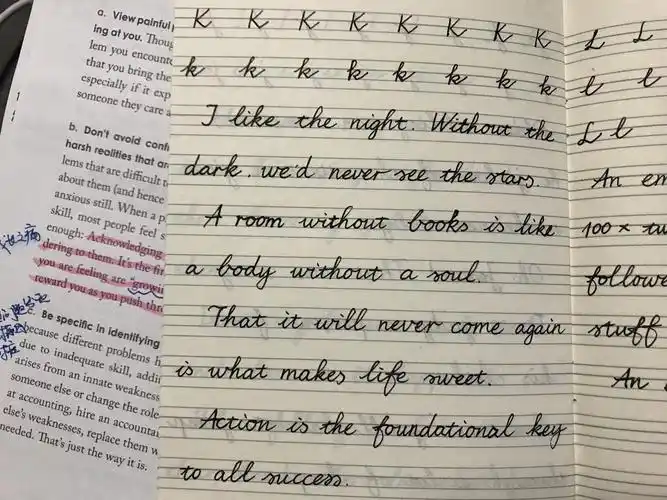 a. View painful
ing at you. Thoug
lem you encounte
that you bring the
especially if it exp
someone they care a
b. Don't avoid conf
harsh realities that ar
lems that are difficult t
about them (and hence
anxious still. When a p
skill, most people feel s
enough: Acknowledging
dering to them. It's the fir
you are feeling are "growi
reward you as you push thro
Be specific in identifying
because different problems h
due to inadequate skill, addi
arises from an innate weakness
someone else or change the role
at accounting, hire an accounta
else's weaknesses, replace them w
needed. That's just the way it is.
K K K K K K K K
k k k k k k k k
I like the night. Without the
dark. we'd never see the stars.
A room without books is like
a body without a soul.
That it will never come again
is what makes life sweet.
Action is the foundational key
to all success.
L L
l l
L l
An em
100 × tu
followe
stuff
An